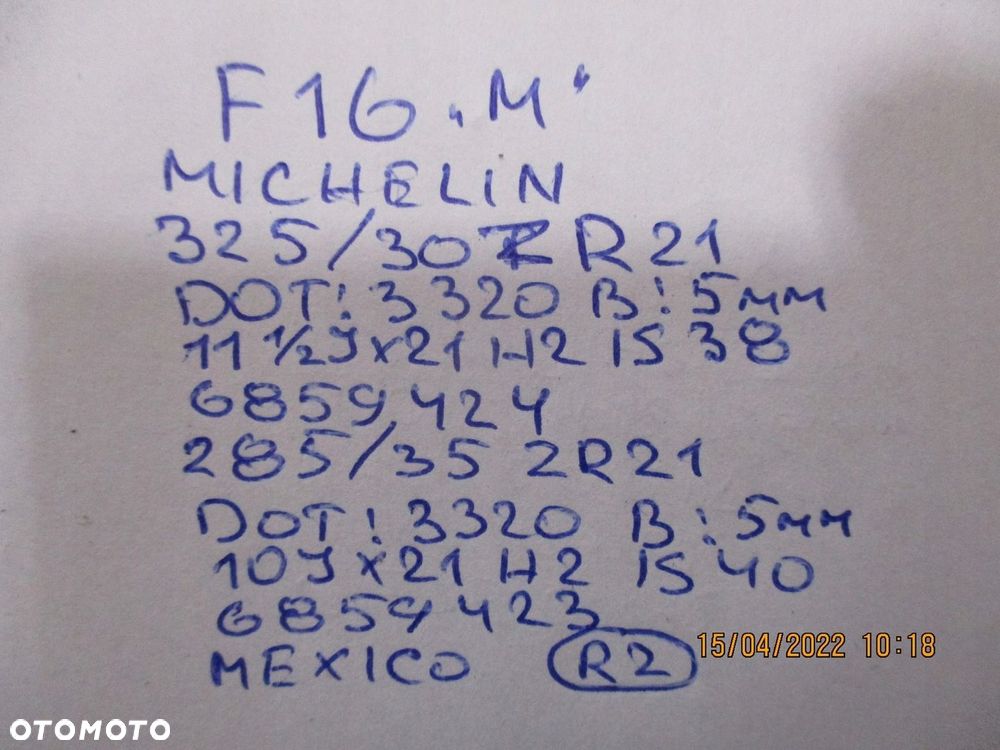 F16 "M"
MICHELIN
325/30 Z R21
DOT: 3320 B: 5mm
11 1/2J x 21 H2 IS 38
6859424
285/35 ZR21
DOT: 3320 B: 5mm
10J x 21 H2 IS 40
6859423
MEXICO R2
15/04/2022 10:18
OTOMOTO